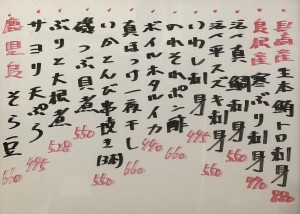 長崎産 生本鮪トロ刺身 880
島根産 寒ぶり刺身 770
活〆真鯛刺身 550
活〆平スズキ刺身 660
いわし刺身 495
のれそれポン酢 660
ボイルホタルイカ 440
ほっけ一夜干し 660
いかとんび串焼き 550
磯つぶ貝煮 550
ぶりと大根煮 528
サヨリ天ぷら 495
鹿児島 そら豆